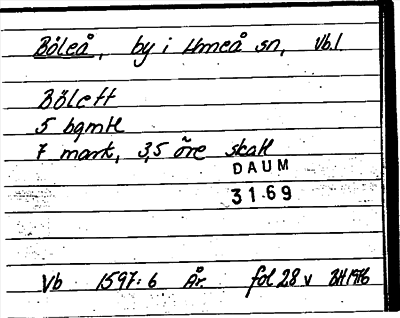 Böleå, by i Umeå sn, Vb.l
Bölett
5 bgmtl
7 mark, 3,5 öre skatt
DAUM
31.69
Vb 1597:6 År. fol 28 v BH 1976